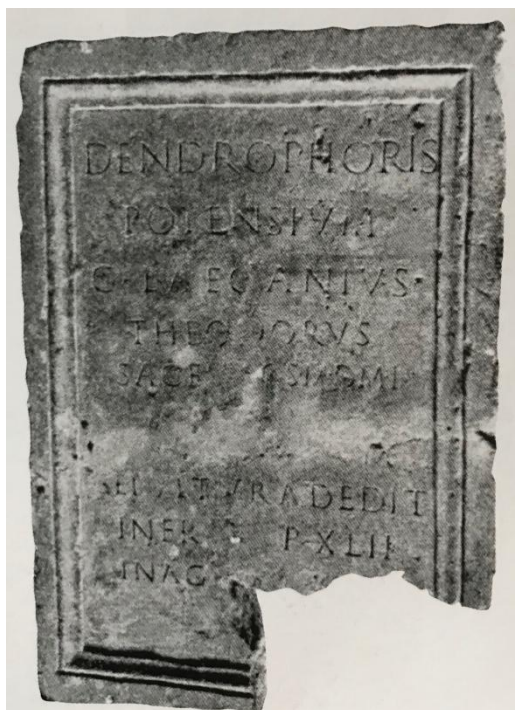 DENDROPHORIS
POLENSIVM
C·LAECANIVS·
THEODORVS
SACERDOS M·D·M·I
SEPVLTVRA DEDIT
IN FR P·XLII
IN AG